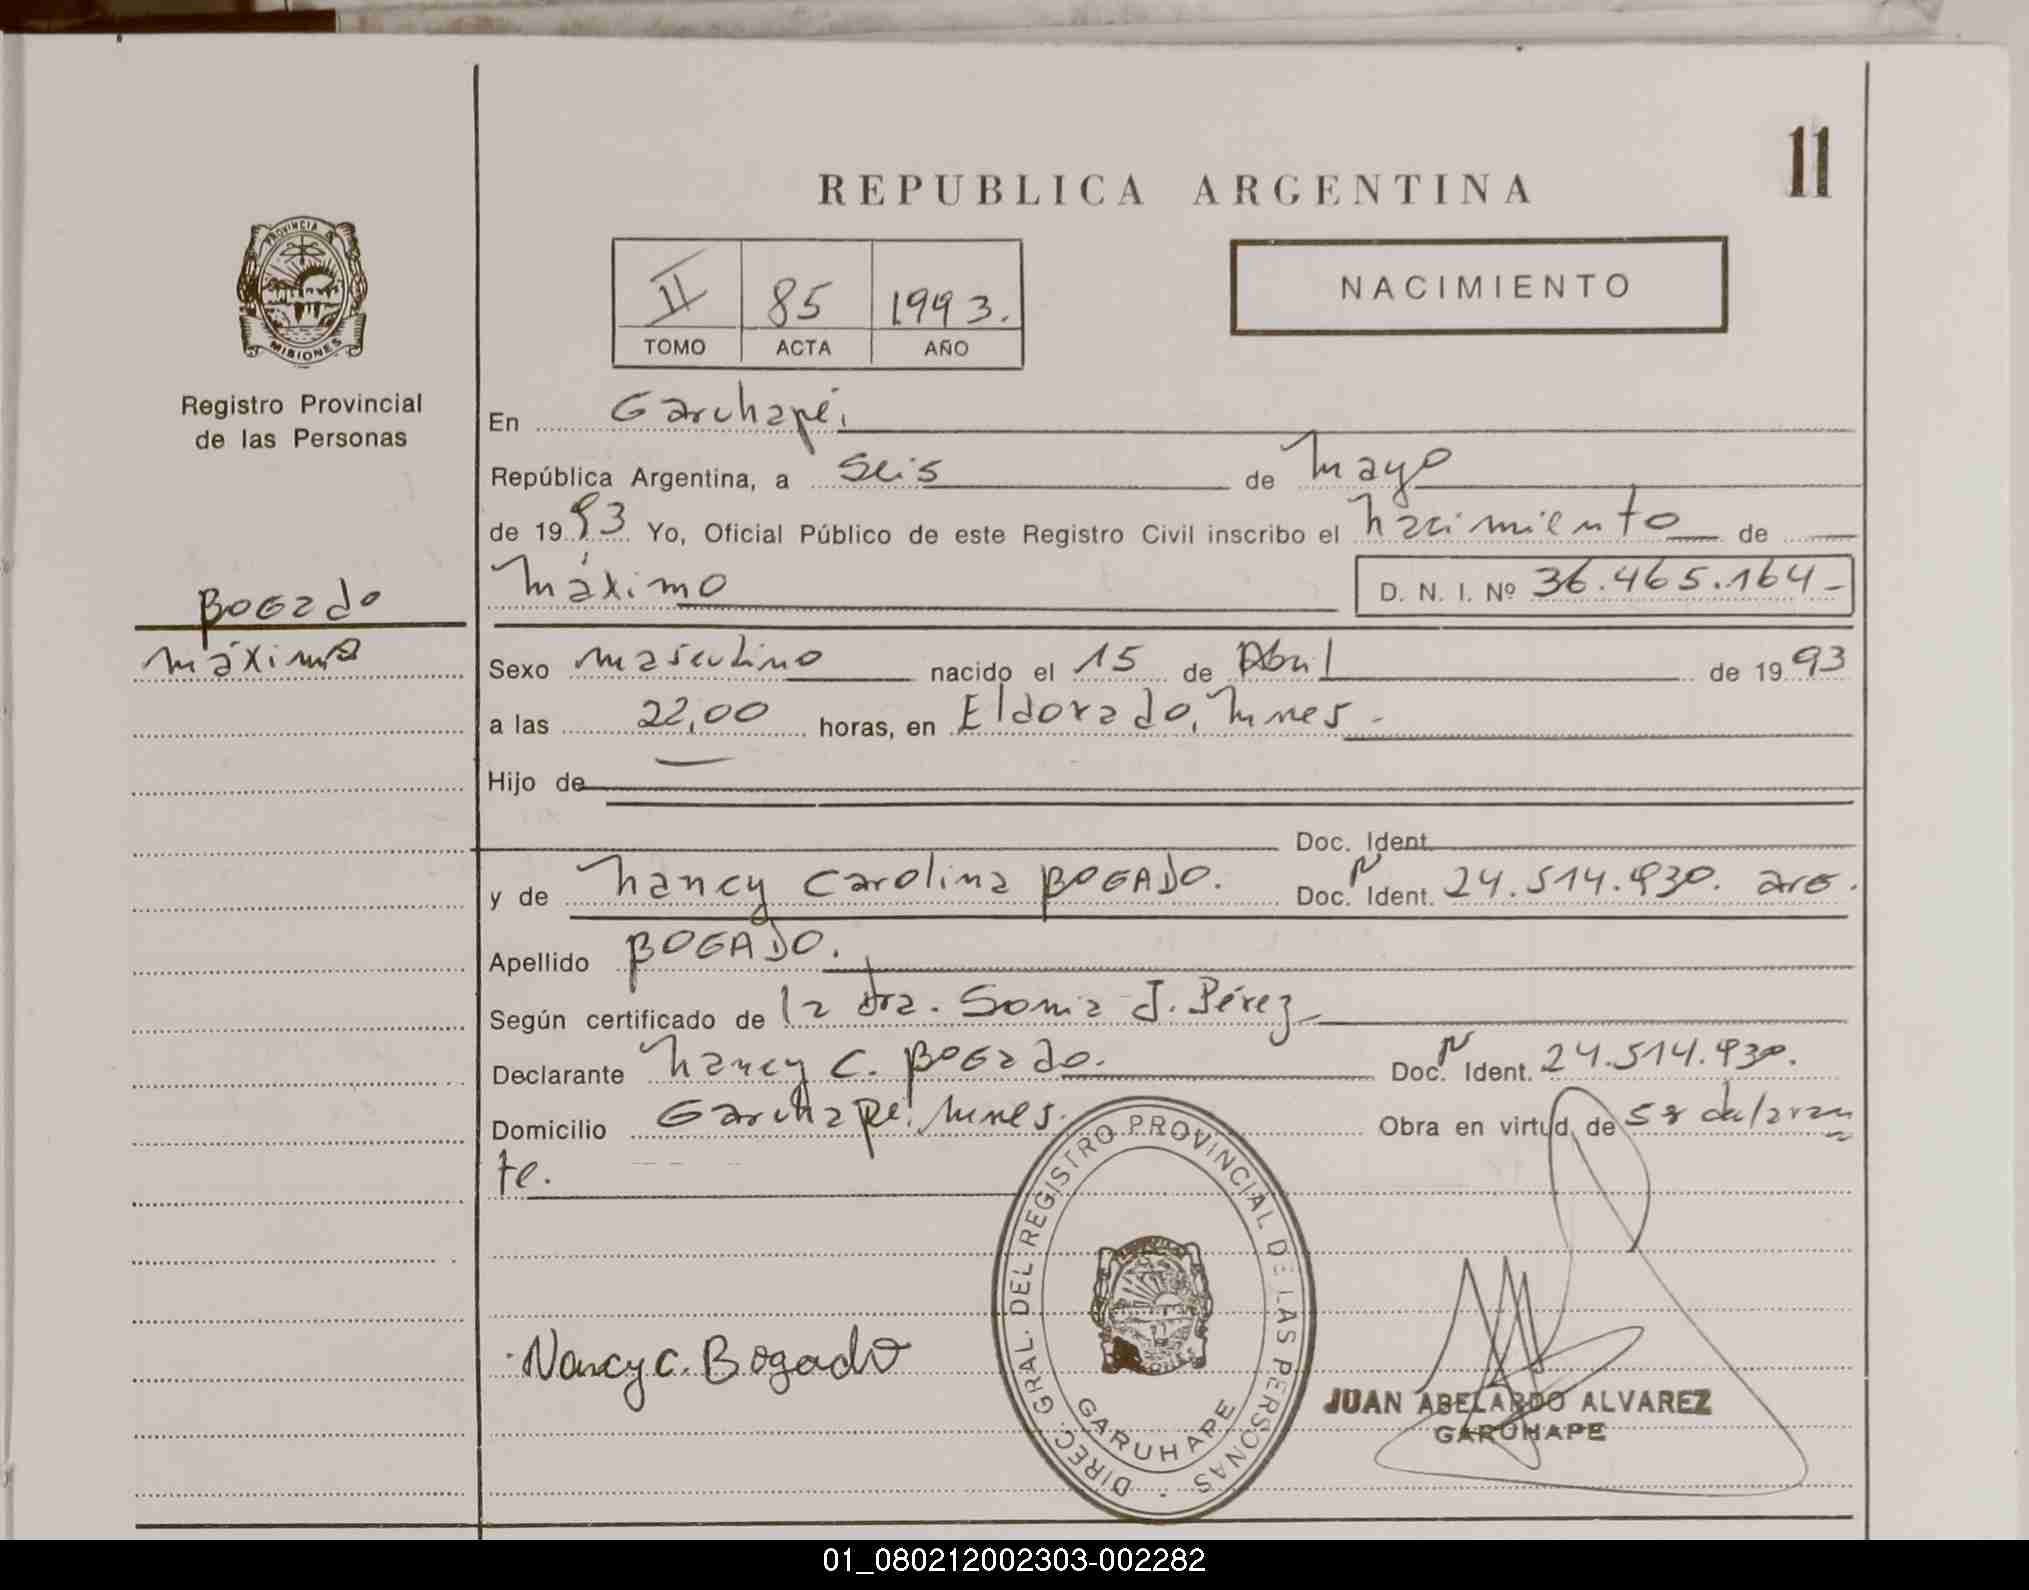 11
REPUBLICA ARGENTINA
PROVINCIA DE
MISIONES
II 85 1993.
TOMO ACTA AÑO
NACIMIENTO
Registro Provincial
de las Personas
En Garuhapé.
República Argentina, a seis de Mayo
de 1993 Yo, Oficial Público de este Registro Civil inscribo el nacimiento de
Máximo D. N. I. Nº 36.465.164-
BOGado
Máximo
Sexo masculino nacido el 15 de Abril de 1993
a las 22,00 horas, en Eldorado, Mnes.-
Hijo de
Doc. Ident.
y de Nancy Carolina BOGADO. Doc. N Ident. 24.514.930. arg.
Apellido BOGADO.
Según certificado de la dra. Sonia J. Pérez
Declarante Nancy C. BOGado. Doc. N Ident. 24.514.930.
Domicilio Garuhapé, Mnes. Obra en virtud de ser declaran
te.
DIREC. GRAL. DEL REGISTRO PROVINCIAL DE LAS PERSONAS
GARUHAPE
Nancy C. Bogado
JUAN ABELARDO ALVAREZ
GARUHAPE
01_080212002303-002282